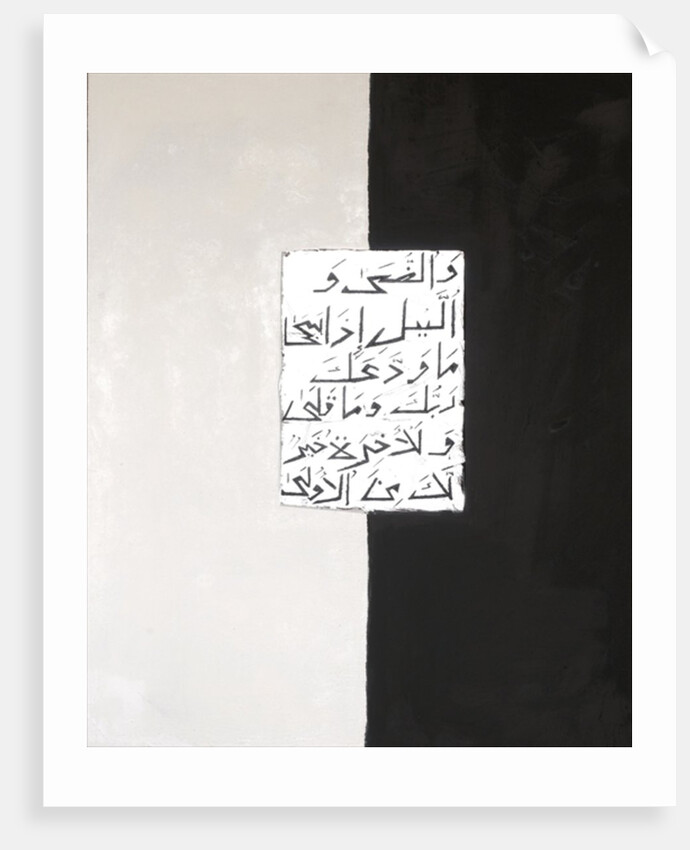 وَالضُّحَىٰ وَ
الَّيْلِ إِذَا سَجَىٰ
مَا وَدَّعَكَ
رَبُّكَ وَمَا قَلَىٰ
وَلَلْآخِرَةُ خَيْرٌ
لَّكَ مِنَ الْأُولَىٰ